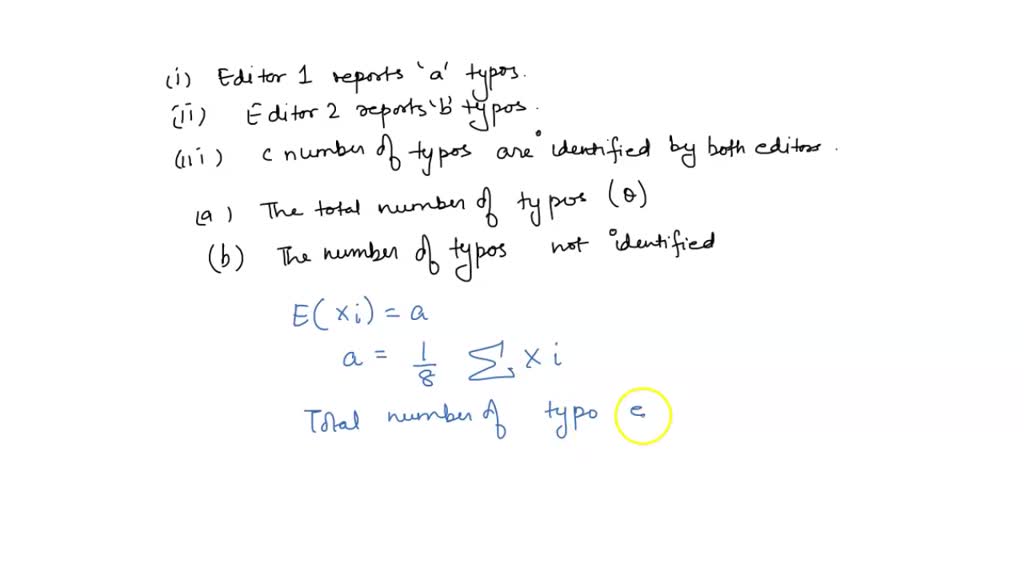 (i) Editor 1 reports 'a' typos.
(ii) Editor 2 reports 'b' typos.
(iii) c number of typos are identified by both editors.
(a) The total number of typos (θ)
(b) The number of typos not identified
E(xi) = a
a = 1/8 Σ xi
Total number of typo e